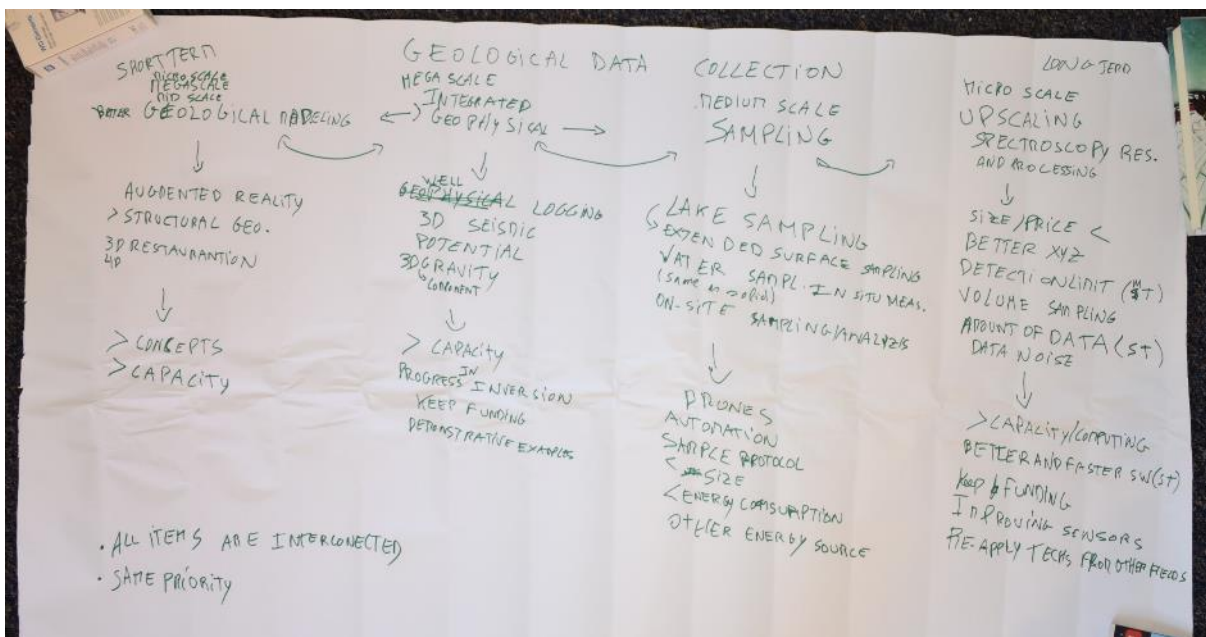 GEOLOGICAL DATA COLLECTION
SHORT TERM
MICRO SCALE
MEGASCALE
MID SCALE
BETTER GEOLOGICAL MODELING
AUGMENTED REALITY
> STRUCTURAL GEO.
3D RESTAURANTION
4D
> CONCEPTS
> CAPACITY
MEGA SCALE
INTEGRATED
GEOPHYSICAL
WELL
GEOPHYSICAL LOGGING
3D SEISMIC
POTENTIAL
3D GRAVITY
COMPONENT
> CAPACITY
IN
PROGRESS INVERSION
KEEP FUNDING
DEMONSTRATIVE EXAMPLES
MEDIUM SCALE
SAMPLING
LAKE SAMPLING
EXTENDED SURFACE SAMPLING
WATER SAMPL. IN SITU MEAS.
(same as solid)
ON-SITE SAMPLING/ANALYZIS
DRONES
AUTOMATION
SAMPLE PROTOCOL
< SIZE
< ENERGY COMSUMPTION
OTHER ENERGY SOURCE
LONG TERM
MICRO SCALE
UPSCALING
SPECTROSCOPY RES.
AND PROCESSING
SIZE/PRICE <
BETTER XYZ
DETECTION LIMIT (MT)
VOLUME SAMPLING
AMOUNT OF DATA (ST)
DATA NOISE
> CAPACITY/COMPUTING
BETTER AND FASTER SW (ST)
KEEP FUNDING
IMPROVING SENSORS
RE-APPLY TECHS FROM OTHER FIELDS
• ALL ITEMS ARE INTERCONECTED
• SAME PRIORITY